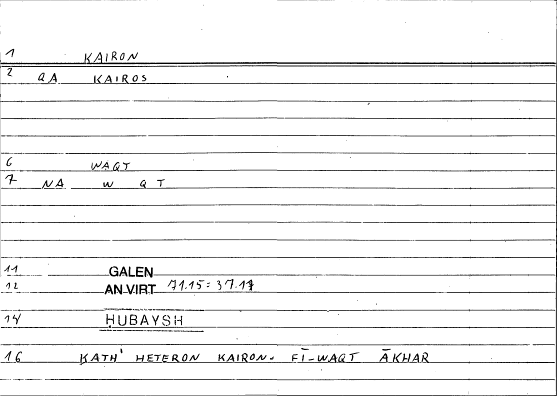 1 KAIRON
2 QA KAIROS
6 WAQT
7 NA W Q T
11 GALEN
12 AN VIRT 71.15 = 37.17
14 ḤUBAYSH
16 KATH' HETERON KAIRON - FĪ-WAQT ĀKHAR